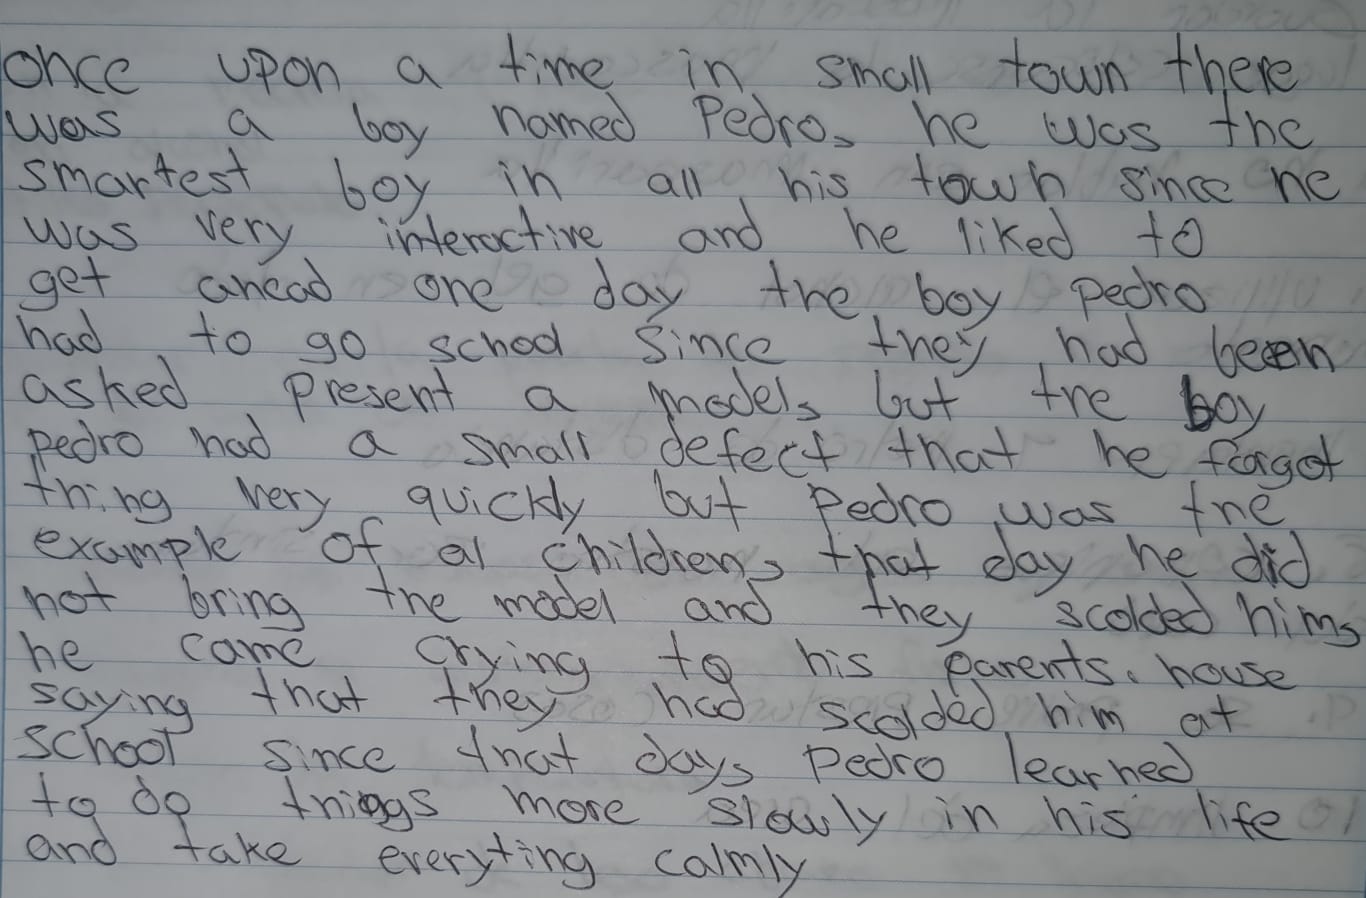 once upon a time in small town there
was a boy named Pedro, he was the
smartest boy in all his town since he
was very interactive and he liked to
get ahead one day the boy pedro
had to go school since they had been
asked present a model, but the boy
pedro had a small defect that he forgot
thing very quickly but pedro was the
example of al children, that day he did
not bring the model and they scolded him,
he came crying to his parents. house
saying that they had scolded him at
school since that day, pedro learned
to do thiggs more slowly in his life
and take everyting calmly